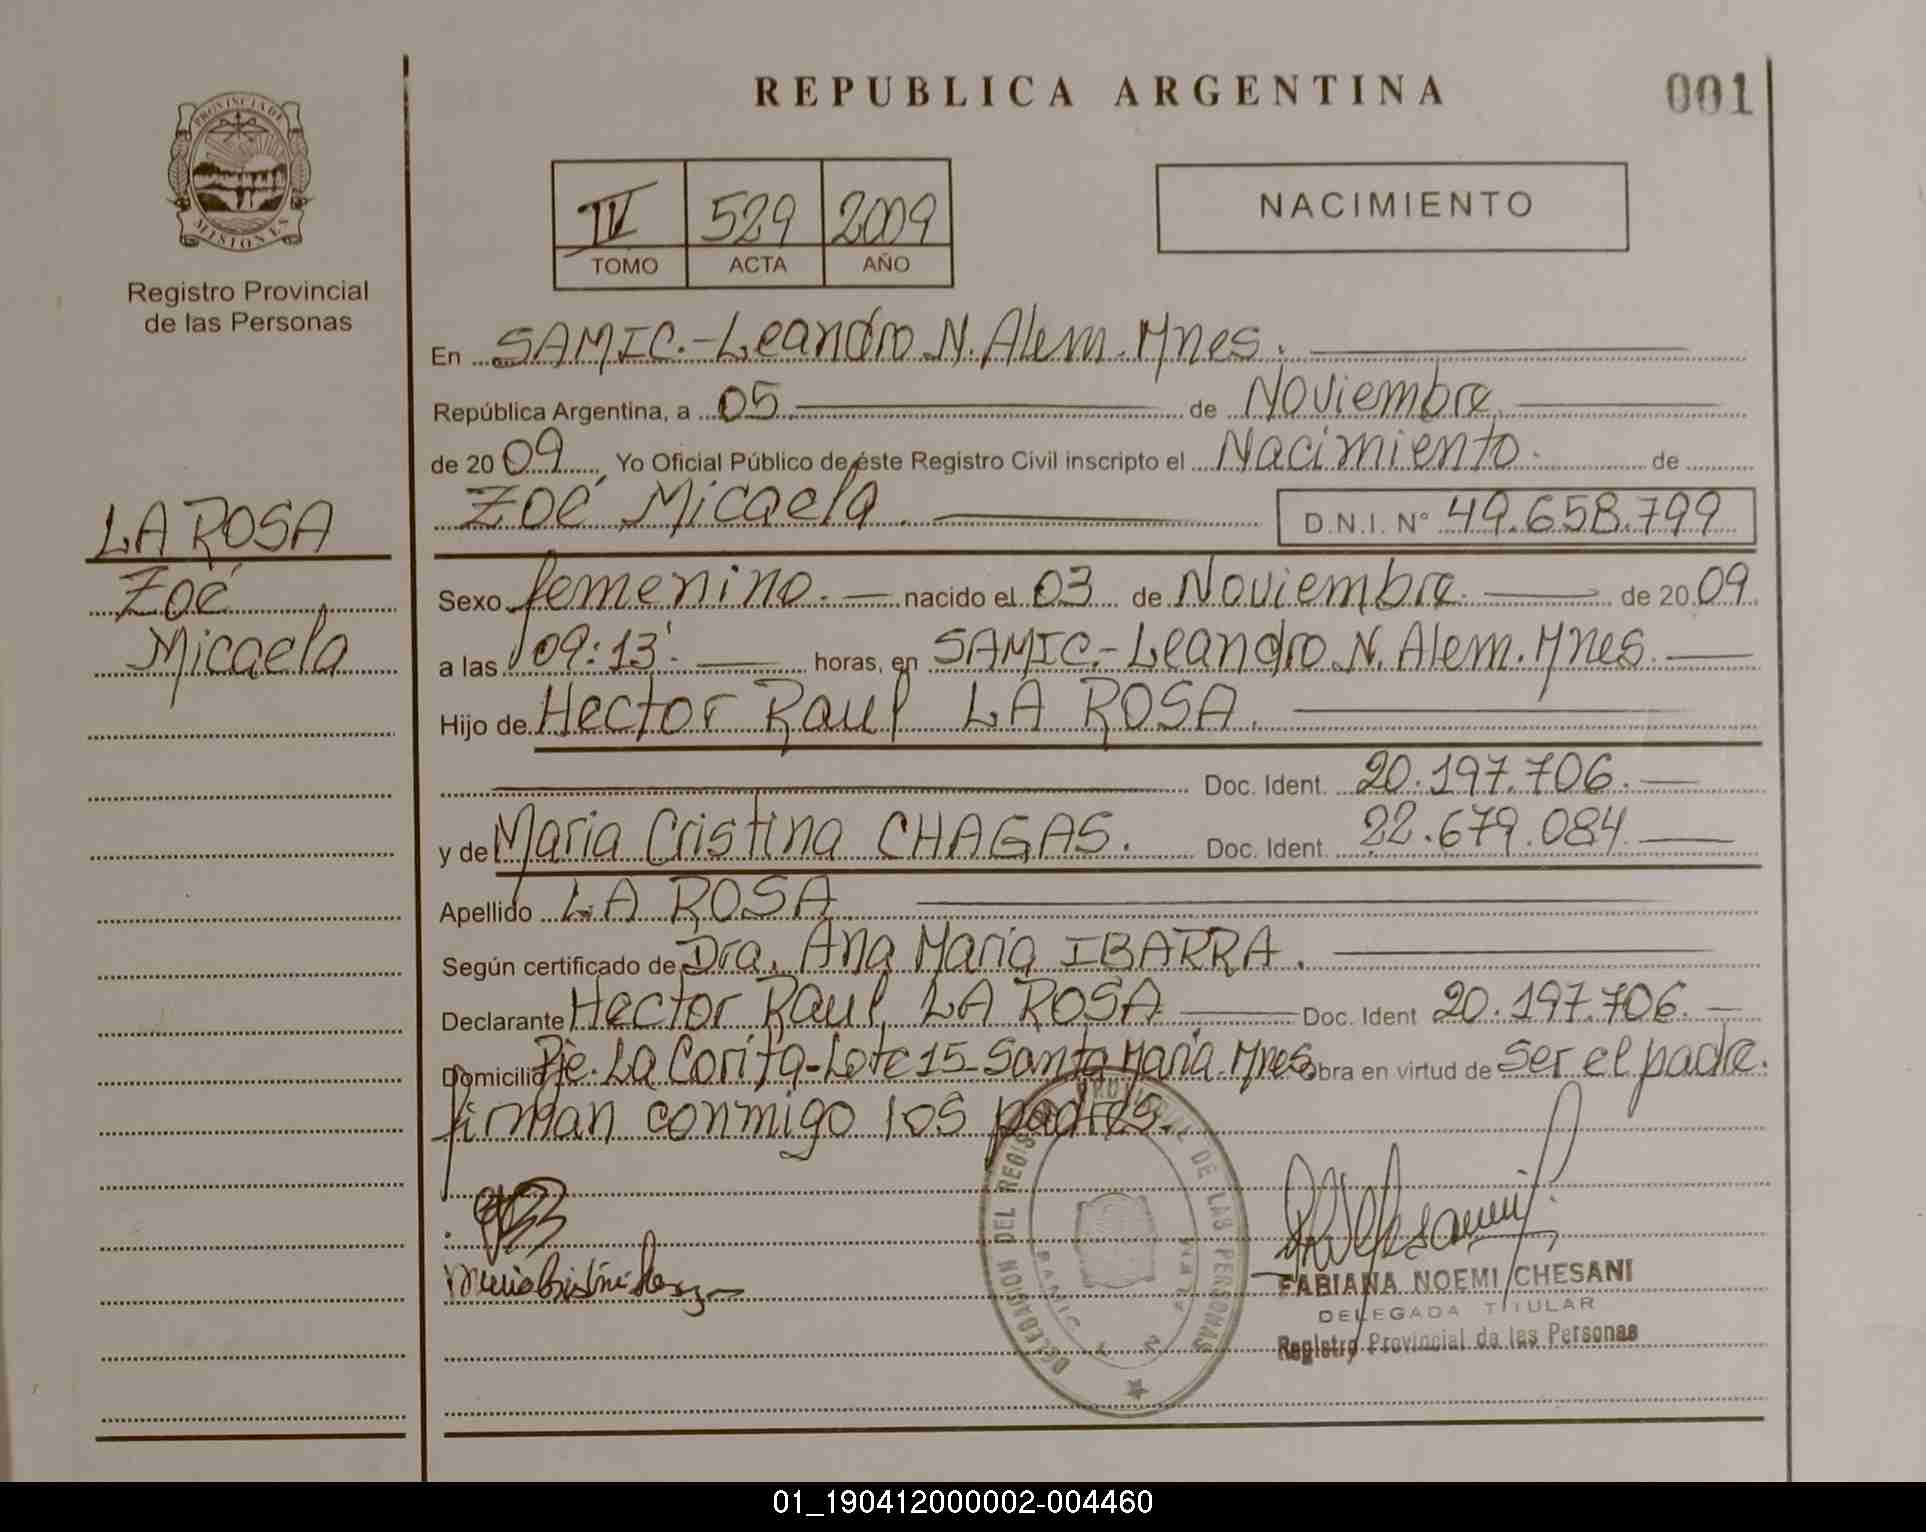 REPUBLICA ARGENTINA
001
PROVINCIA DE
MISIONES
Registro Provincial
de las Personas
IV 529 2009
TOMO ACTA AÑO
NACIMIENTO
En SAMIC.-Leandro N. Alem. Mnes.
República Argentina, a 05 de Noviembre
de 2009, Yo Oficial Público de éste Registro Civil inscripto el Nacimiento. de
Zoé Micaela. D.N.I. N° 49.658.799
LA ROSA
Zoé
Micaela
Sexo femenino. nacido el 03 de Noviembre de 2009.
a las 09:13'. horas, en SAMIC.-Leandro N. Alem. Mnes.
Hijo de Hector Raul LA ROSA.
Doc. Ident. 20.197.706.
y de Maria Cristina CHAGAS. Doc. Ident. 22.679.084.
Apellido LA ROSA
Según certificado de Dra. Ana Maria IBARRA.
Declarante Hector Raul LA ROSA Doc. Ident 20.197.706.
Domicilio Pje. La Corita-Lote 15-Santa Maria. Mnes. Obra en virtud de ser el padre.
firman conmigo los padres.
DELEGACION DEL REGISTRO PROVINCIAL DE LAS PERSONAS
FABIANA NOEMI CHESANI
DELEGADA TITULAR
Registro Provincial de las Personas
01_190412000002-004460